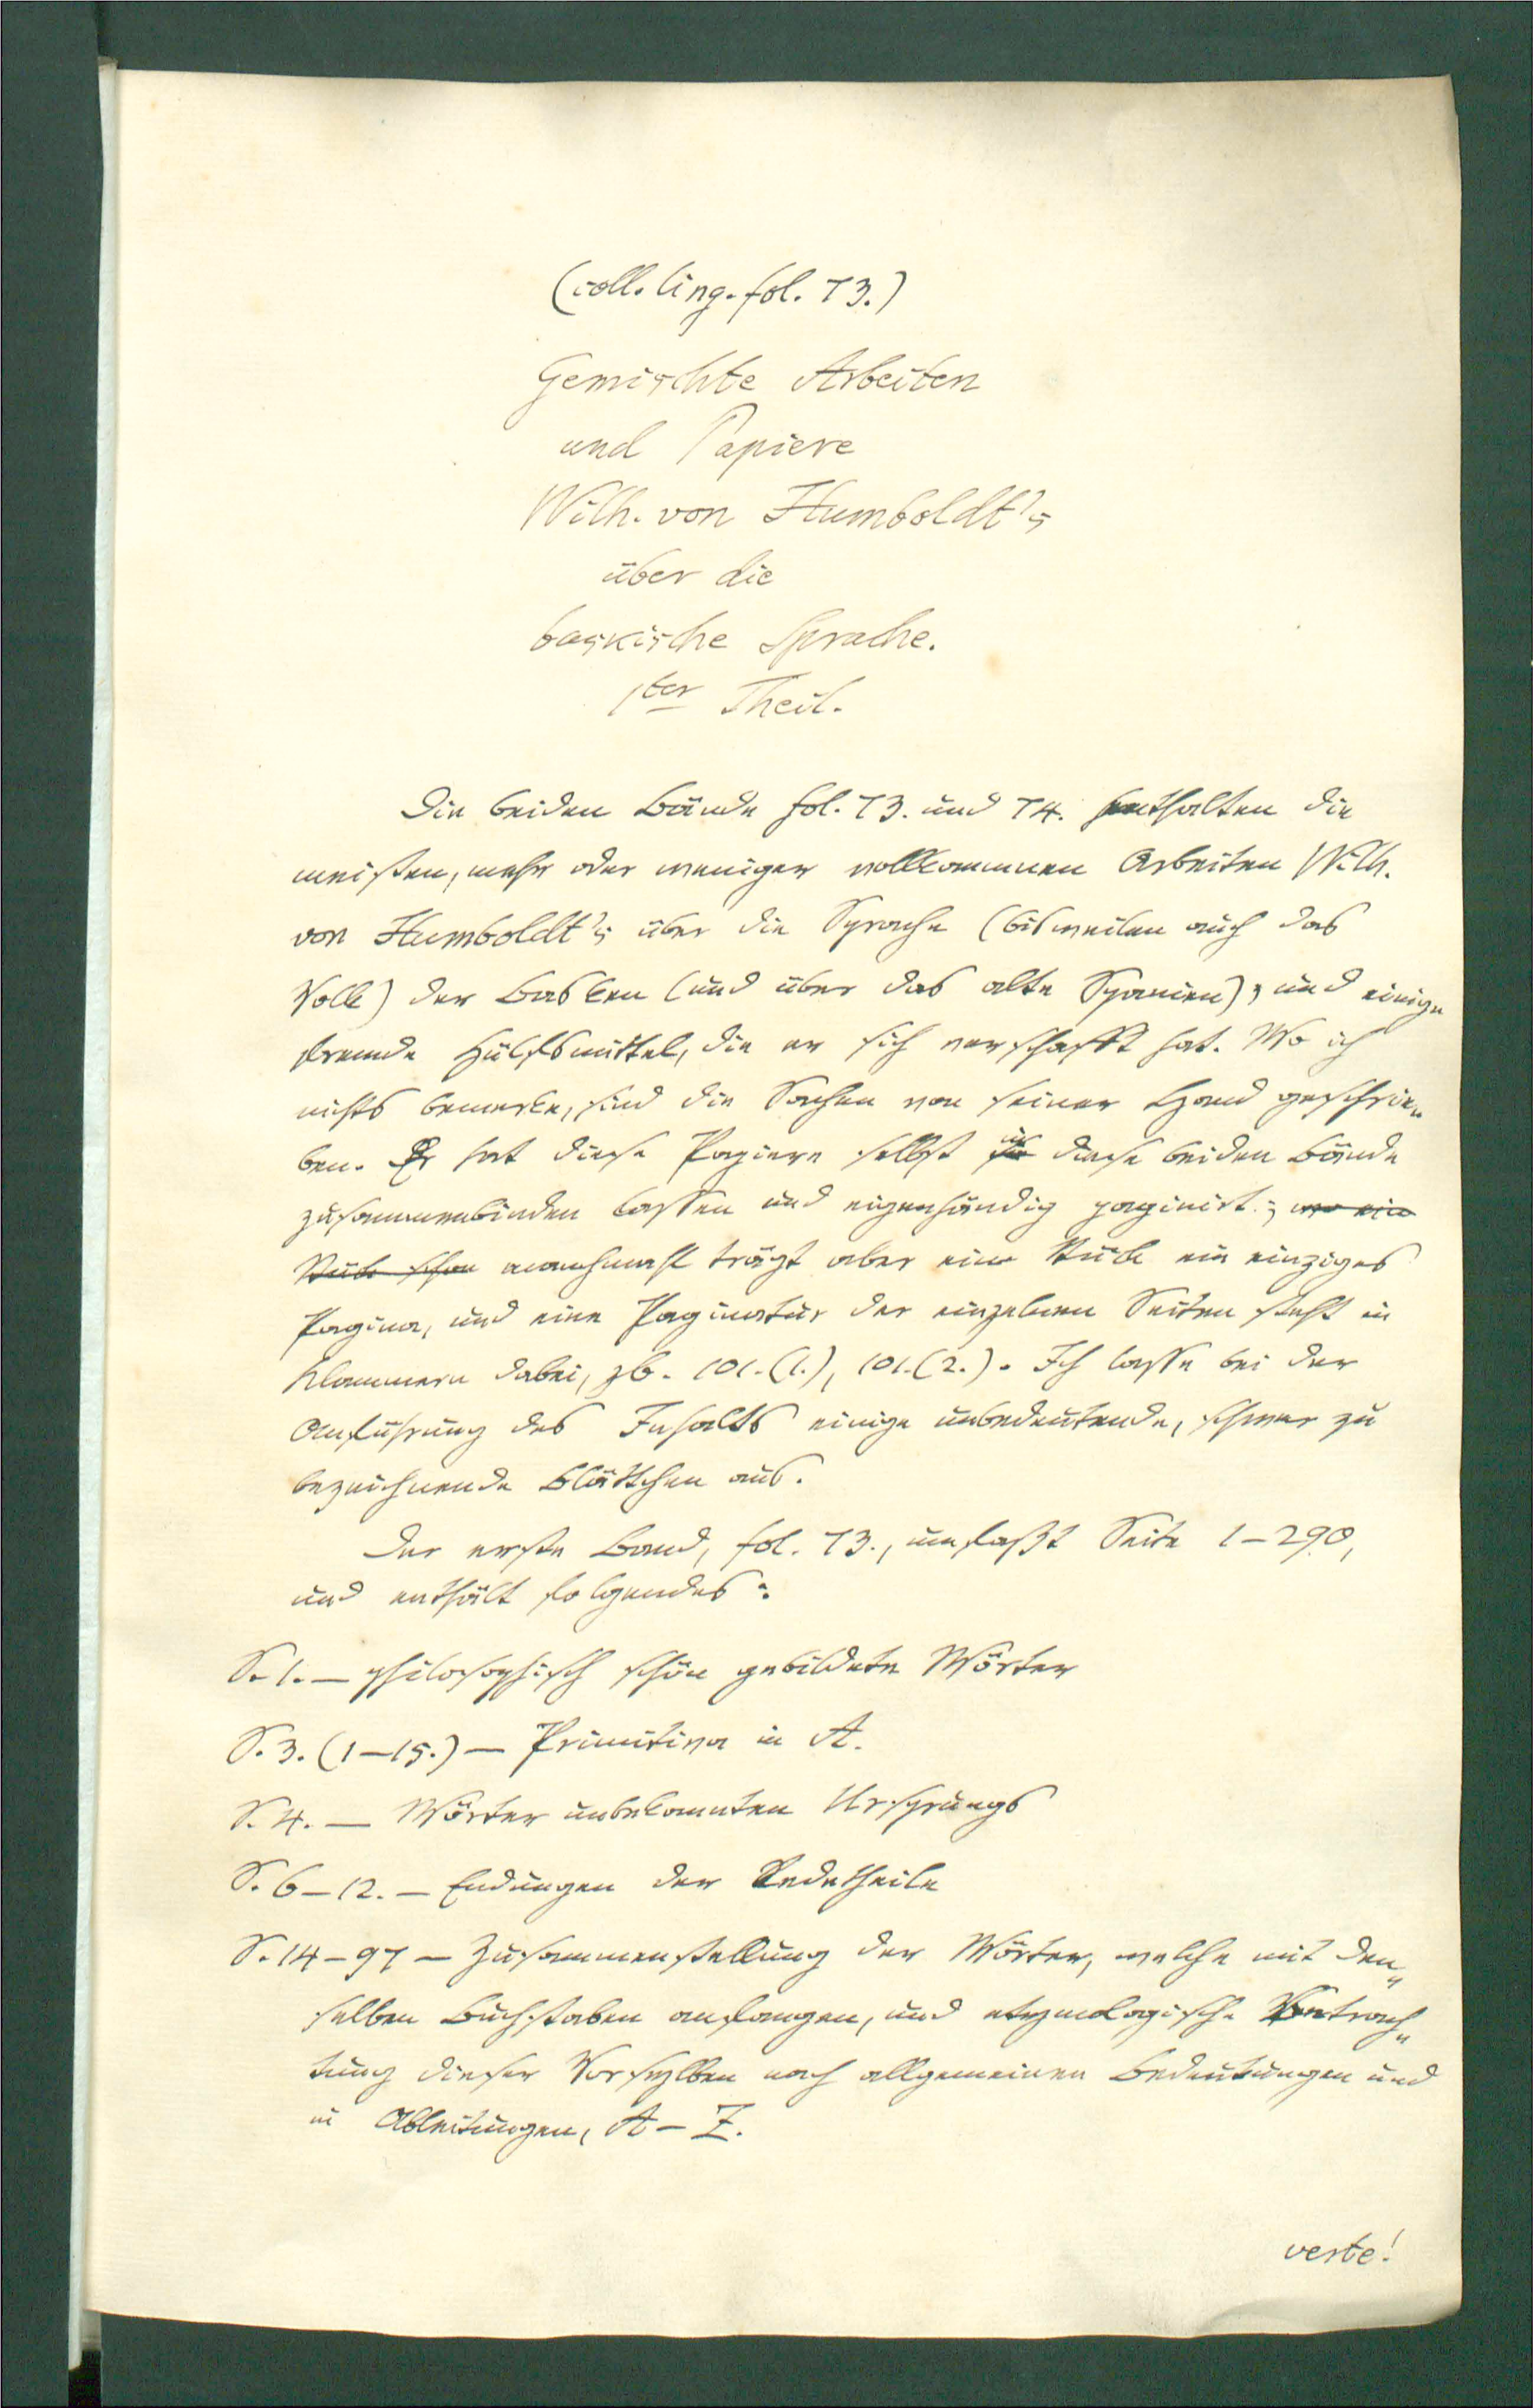 (coll. ling. fol. 73.)
Gemischte Arbeiten
und Papiere
Wilh. von Humboldt's
über die
baskische Sprache.
1ter Theil.
Die beiden Bände fol. 73. und 74. enthalten die
meisten, mehr oder weniger vollkommnen Arbeiten Wilh.
von Humboldt's über die Sprache (bisweilen auch das
Volk) der Basken (und über das alte Spanien), und einige
fremde Hülfsmittel, die er sich verschafft hat. Wo ich
nichts bemerke, sind die Sachen von seiner Hand geschrie„
ben. Er hat diese Papiere selbst in diese beiden Bände
zusammenbinden lassen und eigenhändig paginirt; wo ein
Stück schon manchmahl trägt aber ein Stück ein einziges
Pagina, und eine Paginatur der einzelnen Seiten steht in
Klammern dabei, zb. 101.(1.), 101.(2.). Ich lasse bei der
Anführung des Inhalts einige unbedeutende, schwer zu
bezeichnende Blättchen aus.
Der erste Band, fol. 73., umfaßt Seite 1–290,
und enthält folgendes:
S. 1. – philosophisch schön gebildete Wörter
S. 3. (1–15.) – Primitiva in A.
S. 4. – Wörter unbekannten Ursprungs
S. 6–12. – Endungen der Redetheile
S. 14–97 – Zusammenstellung der Wörter, welche mit den„
selben Buchstaben anfangen, und etymologische Betrach„
tung dieser Vorsylben nach allgemeinen Bedeutungen und
in Ableitungen, A–Z.
verte!